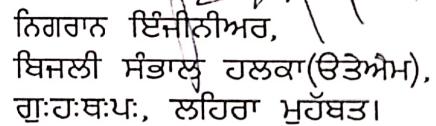 ਨਿਗਰਾਨ ਇੰਜੀਨੀਅਰ,
ਬਿਜਲੀ ਸੰਭਾਲ ਹਲਕਾ(ਓਤੇਐਮ),
ਗੁ:ਹ:ਥ:ਪ:, ਲਹਿਰਾ ਮੁਹੱਬਤ।